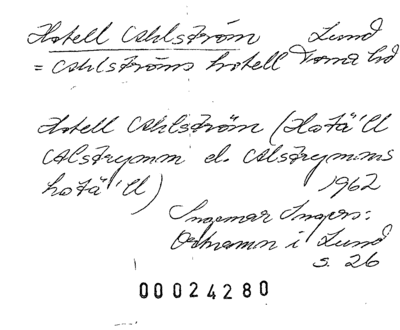 Hotell Ahlström Lund
= Ahlströms hotell Torna hd
Hotell Ahlström (Hotä´ll
Alstrymm el. Alstrymms
hotä´ll) 1962
Ingemar Ingers:
Ortnamn i Lund
s. 26
00024280